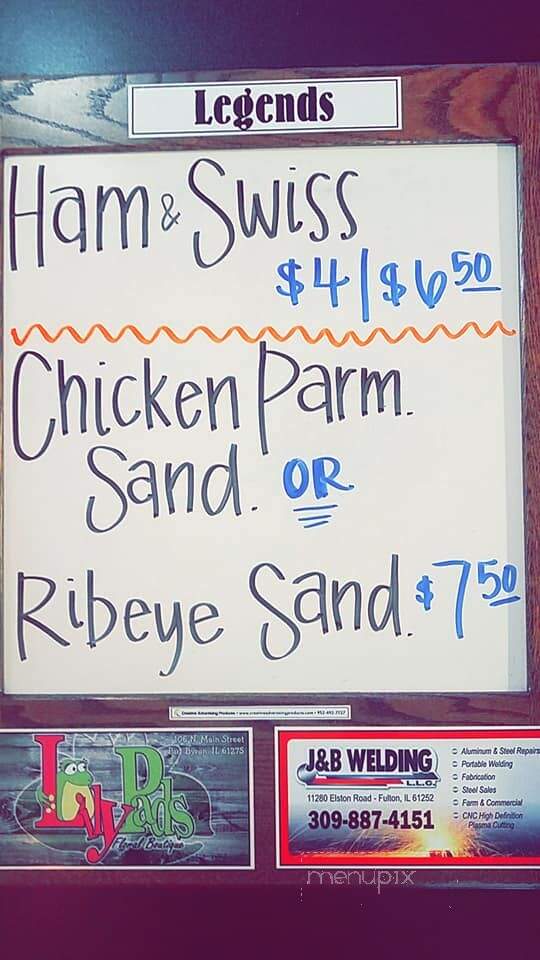 Legends
Ham & Swiss
$4/$6 50
Chicken Parm.
Sand. OR
Ribeye Sand. $7 50
Creative Advertising Products • www.creativeadvertisingproducts.com • 952-492-7727
106 N. Main Street
Port Byron, IL 61275
Lily Pads
Floral Boutique
J&B WELDING
L.L.C.
11280 Elston Road - Fulton, IL 61252
309-887-4151
Aluminum & Steel Repairs
Portable Welding
Fabrication
Steel Sales
Farm & Commercial
CNC High Definition
Plasma Cutting
menupix